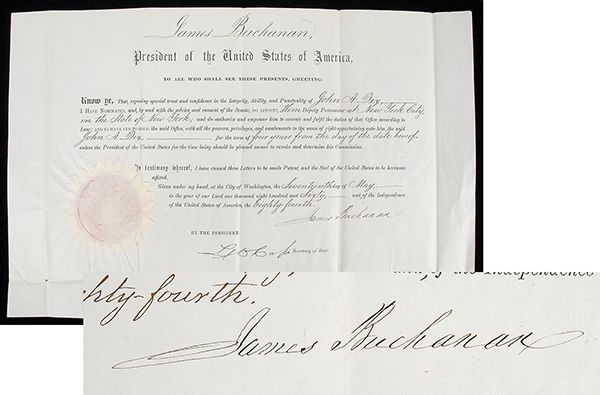 James Buchanan,
President of the United States of America,
TO ALL WHO SHALL SEE THESE PRESENTS, GREETING:
Know ye, That, reposing special trust and confidence in the Integrity, Ability, and Punctuality of John A. Dix,
I HAVE NOMINATED, and, by and with the advice and consent of the Senate, DO APPOINT, Him Deputy Postmaster at New York City,
in the State of New York, and do authorize and empower him to execute and fulfil the duties of that Office according to
Law; AND TO HAVE AND TO HOLD the said Office, with all the powers, privileges, and emoluments to the same of right appertaining unto him, the said
John A. Dix, for the term of four years from the day of the date hereof,
unless the President of the United States for the time being should be pleased sooner to revoke and determine his Commission.
In testimony whereof, I have caused these Letters to be made Patent, and the Seal of the United States to be hereunto
affixed.
Given under my hand, at the City of Washington, the Seventeenth of May
in the year of our Lord one thousand eight hundred and Sixty, and of the Independence
of the United States of America, the Eighty-fourth.
James Buchanan
BY THE PRESIDENT:
Secretary of State.
the Independence
hty-fourth.
James Buchanan